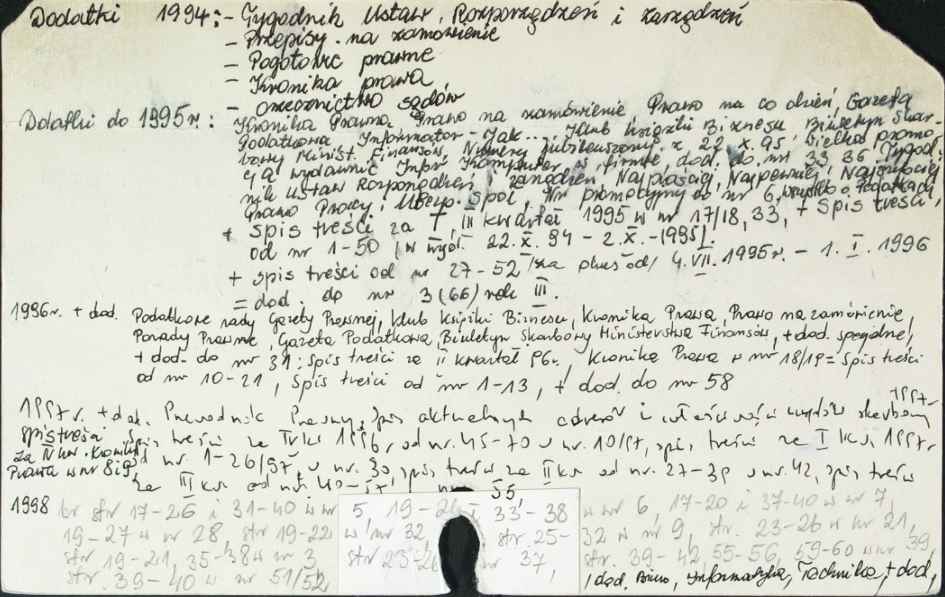 Dodatki 1994: - Tygodnik Ustaw, Rozporządzeń i zarządzeń
- Przepisy na zamówienie
- Pogotowie prawne
- Kronika prawa
- orzecznictwo sądów
Dodatki do 1995r: Kronika Prawna Prawo na zamówienie Prawo na co dzień, Gazeta
Podatkowa Informator - Jak... Klub Książki Biznesu, Biuletyn Skar-
bowy Minist. Finansów, Numery jubileuszowy z 22 X. 95, Wielka promo-
cja wydawnic Infor Komputer w firmie, dod. do nr 35 36 Tygod-
nik Ustaw Rozporządzeń i zarządzeń, Najprościej, Najpewniej i Najszybciej
Prawo Pracy i Ubezp. Społ., Nr promocyjny do nr 6, wszystko o Podatkach,
+ spis treści za I, III kwartał 1995 w nr 17/18, 33, + spis treści,
od nr 1-50 (w wyd. 22.X.94 - 2.X.-1995).
+ spis treści od nr 27-52 /za plus od/ 4.VII.1995r - 1.I.1996
= dod. do nr 3 (66) rok III.
1996r. + dod. Podatkowe rady Gazety Prawnej, Klub Książki Biznesu, Kronika Prawa, Prawo na zamówienie,
Porady Prawne, Gazeta Podatkowa, Biuletyn Skarbowy Ministerstwa Finansów, + dod. specjalne,
+ dod. do nr 31: Spis treści za II kwartał 96r, Kronika Prawa w nr 18/19 = Spis treści
od nr 10-21, Spis treści od nr 1-13, + dod. do nr 58
1997r. + dod. Przewodnik Prawny, spis aktualnych adresów i właściwości urzędów skarbowy
1997r
spis treści spis treści za IV kw 1996r od nr. 45-70 w nr. 10/97, spis treści za I kw. 1997r
za IV kw. Kronika
Prawa w nr 8i9 nr. 1-26/97, w nr. 30, spis treści za II kw od nr. 27-39 w nr. 42, spis treści
za III kw od nr. 40-57, w nr 55,
1998 br str 17-26 i 31-40 w nr 5, 19-2 i 33-38 w nr 6, 17-20 i 37-40 w nr 7,
19-27 w nr 28, str 19-22 w nr 32, str. 25-32 w nr 9, str. 23-26 w nr 21,
str 19-21, 35-38 w nr 3, str 23-2 nr 37, str. 39-42, 55-56, 59-60 w nr. 39,
str. 39-40 w nr 51/52, , dod. Biuro, Informatyka, Technika, + dod,